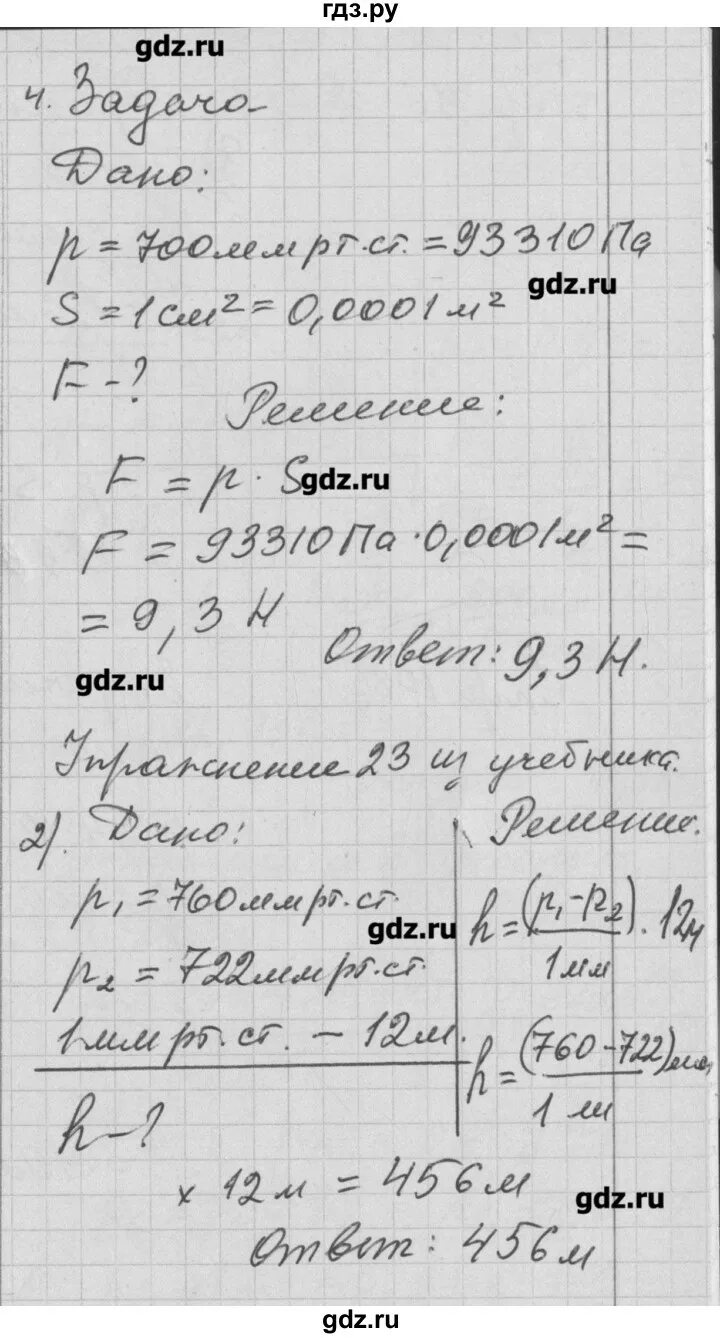 гдз.ру
gdz.ru
4. Задача
Дано:
p = 700 мм рт. ст. = 93310 Па
gdz.ru
S = 1 см² = 0,0001 м²
F - ?
Решение:
F = p · S
gdz.ru
F = 93310 Па · 0,0001 м² =
= 9,3 Н
Ответ: 9,3 Н.
gdz.ru
Упражнение 23 из учебника.
2). Дано:
p₁ = 760 мм рт. ст.
p₂ = 722 мм рт. ст.
1 мм рт. ст. - 12 м.
h - ?
Решение.
gdz.ru
h = (p₁ - p₂) / 1 мм · 12 м
h = (760 - 722) мм / 1 мм
× 12 м = 456 м
gdz.ru
Ответ: 456 м
gdz.ru